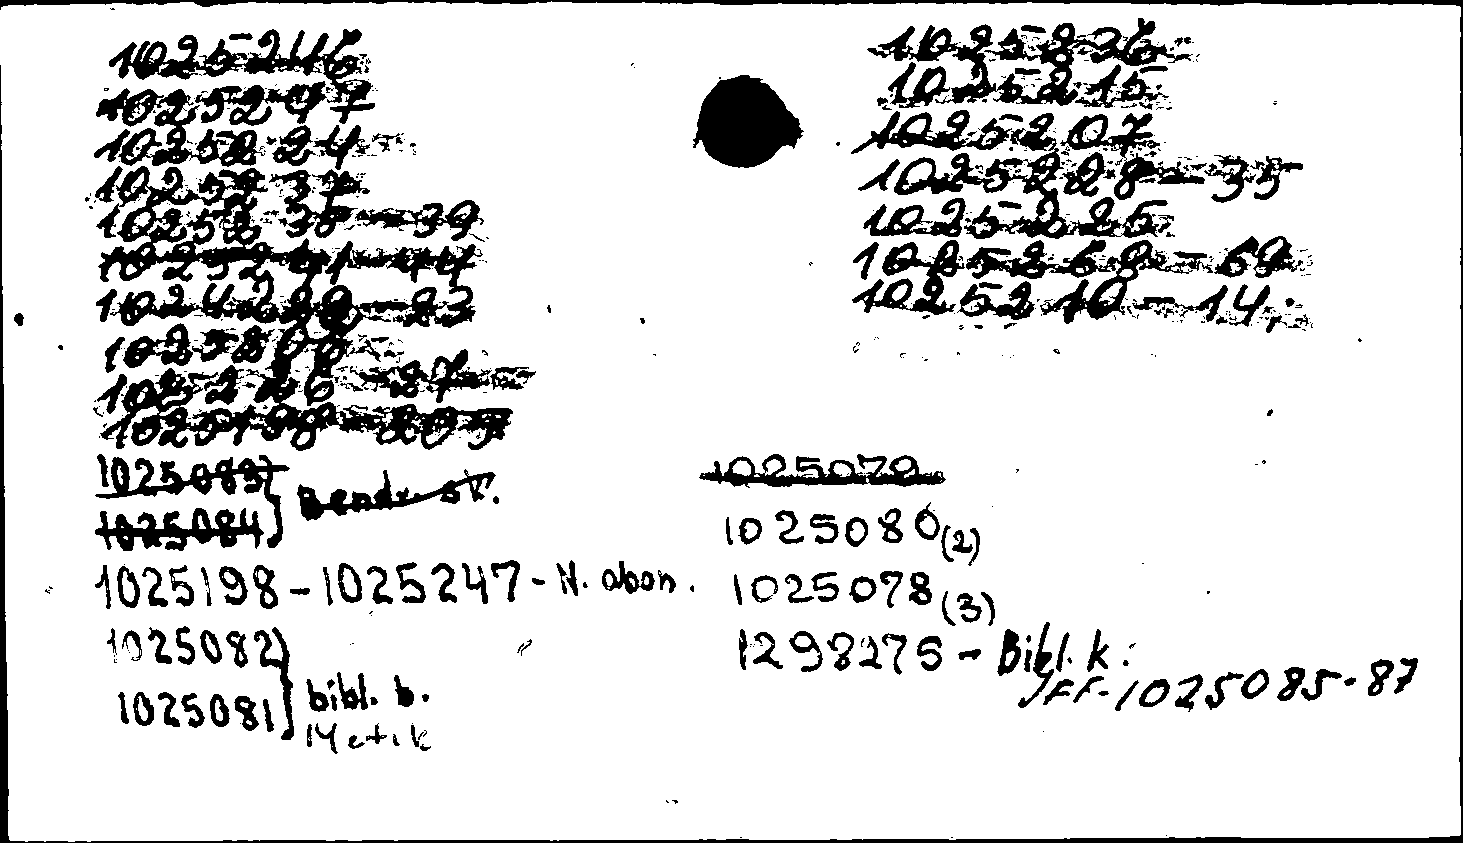 1025246
1025247
1025224
1025237
1025238 - 39
1025241 - 44
1025206
1025226 - 27
1025198 - 205
1025083 } Bendr. sk.
1025084
1025198 - 1025247 - N. abon.
1025082 } bibl. b.
1025081 Metik
1025236
1025215
1025207
1025228 - 35
1025225
1025268 - 69
1025210 - 14.
1025079
1025080 (2)
1025078 (3)
1298276 - Bibl. k.
1025085-87